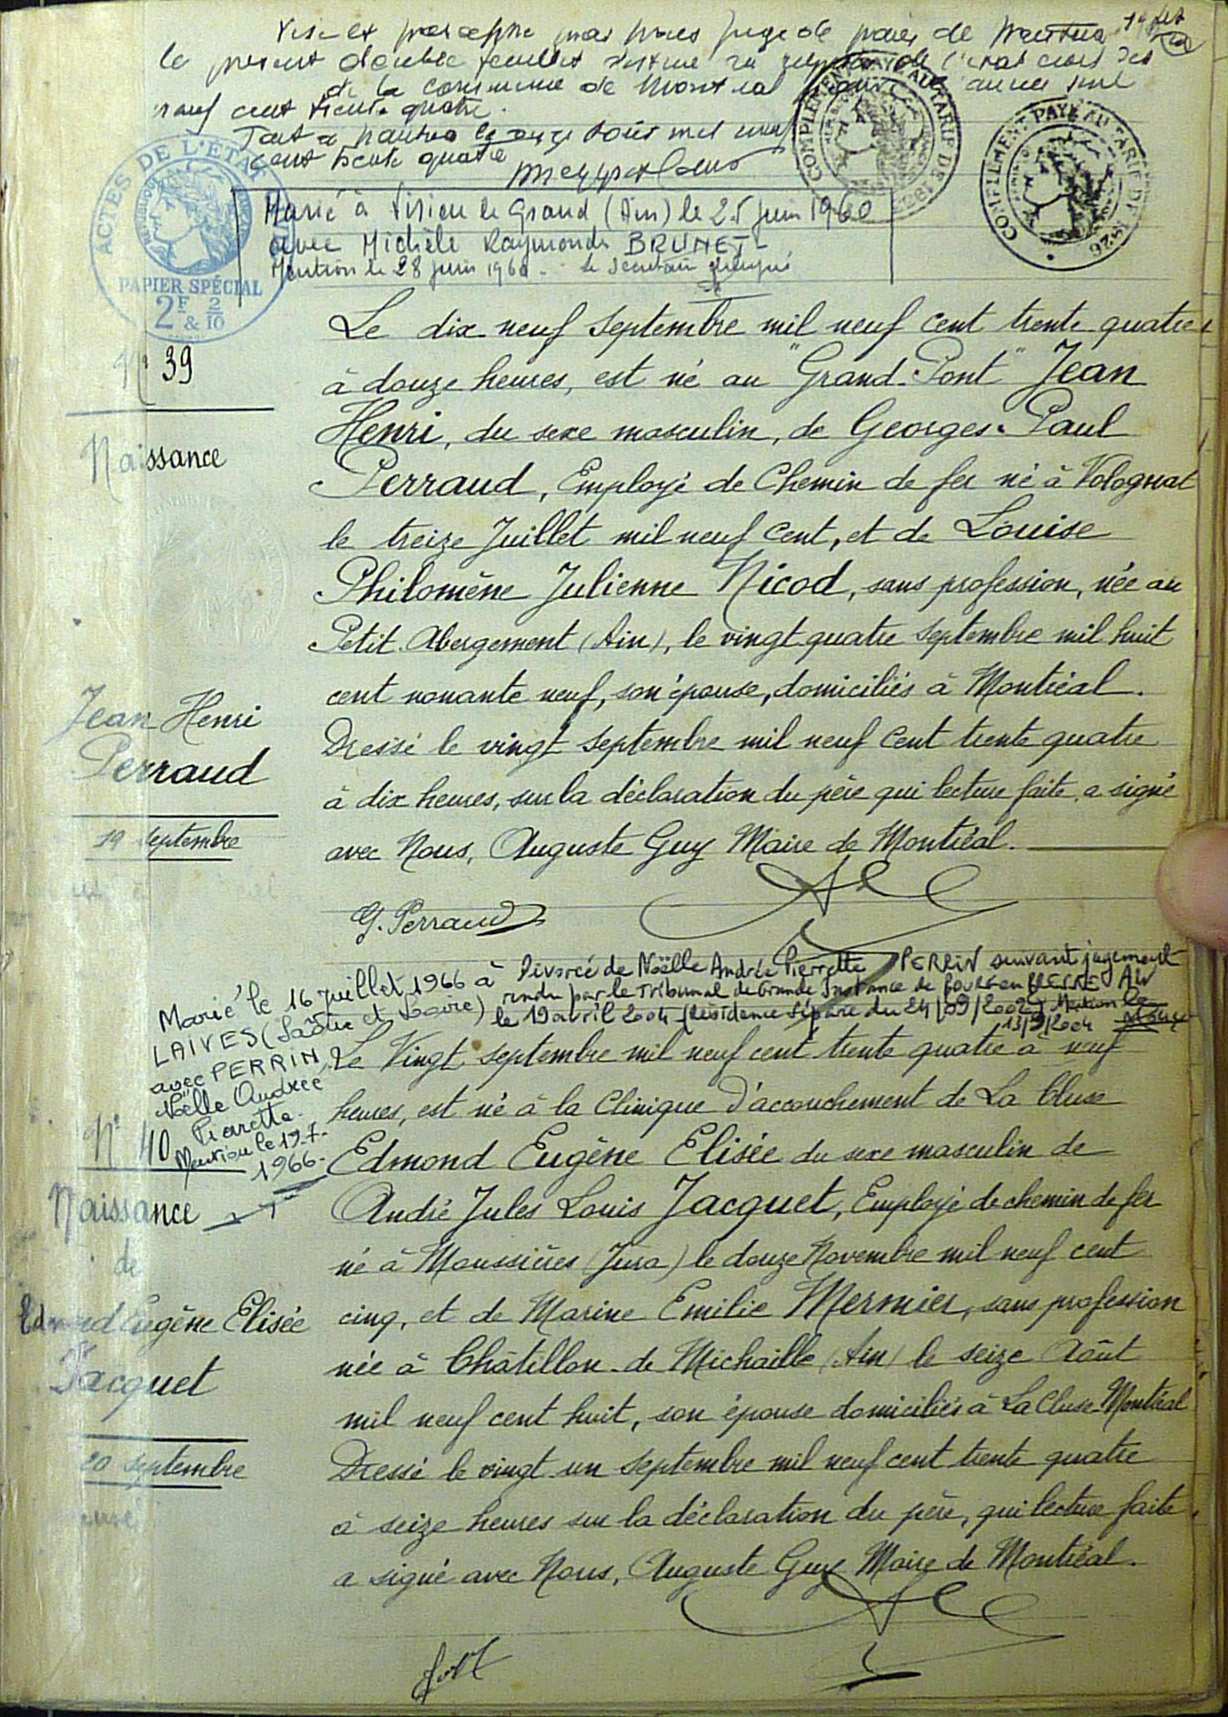 Visé et par nous juge de paix de Nantua
le présent double feuillet destiné au de l'état civil
de la commune de Montréal année mil
neuf cent trente quatre.
Fait à Nantua le onze mil neuf
cent trente quatre
ACTES DE L'ÉTAT
PAPIER SPÉCIAL
2F & 2/10
COMPLÉMENT PAYÉ AU TARIF DE 1926
COMPLÉMENT PAYÉ AU TARIF DE 1926
Marié à Virieu le Grand (Ain) le 25 juin 1960
avec Michèle Raymonde BRUNET
Mention le 28 juin 1960. Le Secrétaire
N° 39
Naissance
Jean Henri
Perraud
19 septembre
Le dix neuf septembre mil neuf cent trente quatre
à douze heures, est né au "Grand-Pont" Jean
Henri, du sexe masculin, de Georges-Paul
Perraud, Employé de Chemin de fer né à Volognat
le treize Juillet mil neuf cent, et de Louise
Philomène Julienne Nicod, sans profession, née au
Petit Abergement (Ain), le vingt quatre septembre mil huit
cent nonante neuf, son épouse, domiciliés à Montréal.
Dressé le vingt septembre mil neuf cent trente quatre
à dix heures, sur la déclaration du père qui lecture faite, a signé
avec Nous, Auguste Guy Maire de Montréal.
G. Perraud
Marié le 16 juillet 1966 à
LAIVES (Saône et Loire)
avec PERRIN
Noëlle Andrée
Pierrette.
Mention le 19-7-
1966.
Divorcé de Noëlle Andrée Pierrette PERRIN suivant jugement
rendu par le Tribunal de Grande Instance de BOURG en BRESSE AIN
le 19 avril 2004 Résidence séparée du 24/09/2002 Mention le
13/9/2004
N° 40
Naissance
de
Edmond Eugène Elisée
Jacquet
20 septembre
Le Vingt septembre mil neuf cent trente quatre à neuf
heures, est né à la Clinique d'accouchement de La Cluse
Edmond Eugène Elisée du sexe masculin de
André Jules Louis Jacquet, Employé de chemin de fer
né à Moussières (Jura) le douze Novembre mil neuf cent
cinq, et de Marine Emilie Mermier, sans profession
née à Châtillon-de Michaille (Ain) le seize Août
mil neuf cent huit, son épouse domiciliés à La Cluse-Montréal
Dressé le vingt un septembre mil neuf cent trente quatre
à seize heures sur la déclaration du père, qui lecture faite
a signé avec Nous, Auguste Guy Maire de Montréal.